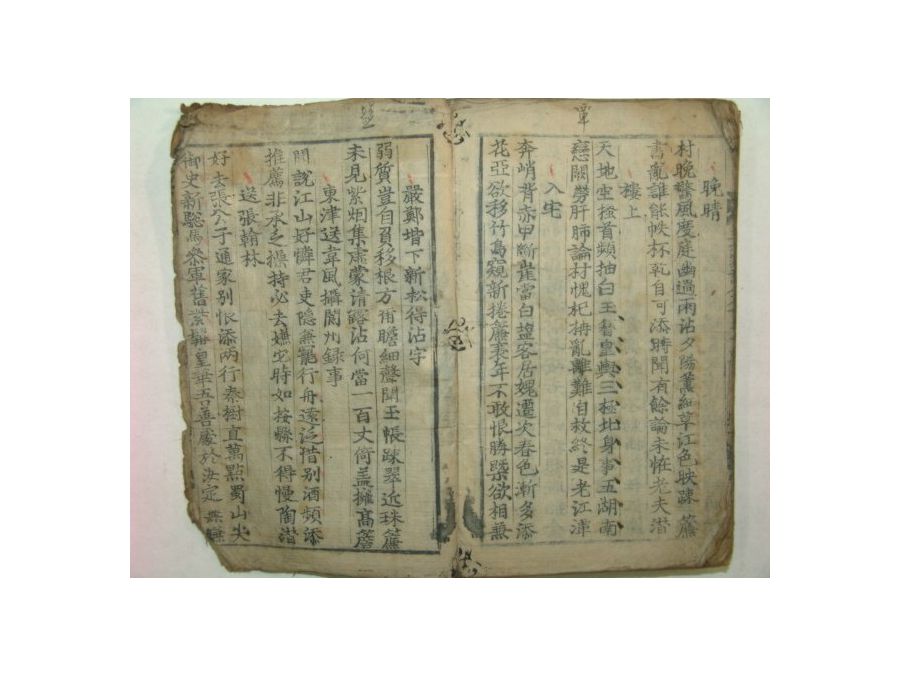 覃
晚晴
村晚驚風度庭幽過雨沾夕陽薰細草江色映疎簾
書亂誰能帙杯乾自可添時聞有餘論未恠老夫潛
樓上
天地空搔首頻抽白玉簪皇輿三極北身事五湖南
戀闕勞肝肺論村愧杞柟亂離難自救終是老江潭
入宅
奔峭背赤甲斷崖當白塩客居媿遷次春色漸多添
花亞欲移竹鳥窺新捲簾衰年不敢恨勝槩欲相兼
嚴鄭堦下新松得沾字
弱質豈自負移根方爾瞻細聲聞玉帳疎翠近珠簾
未見紫烟集虛蒙清露沾何當一百丈倚盖擁高簷
東津送韋風攝閬州録事
聞說江山好憐君吏隱兼寵行舟遠泛惜別酒頻添
推薦非承乏操持必去嫌它時如按縣不得慢陶潛
送張翰林
好去張公子通家別恨添兩行秦樹直萬點蜀山尖
御史新驄馬參軍舊紫髯皇華吾善處於汝定無嫌